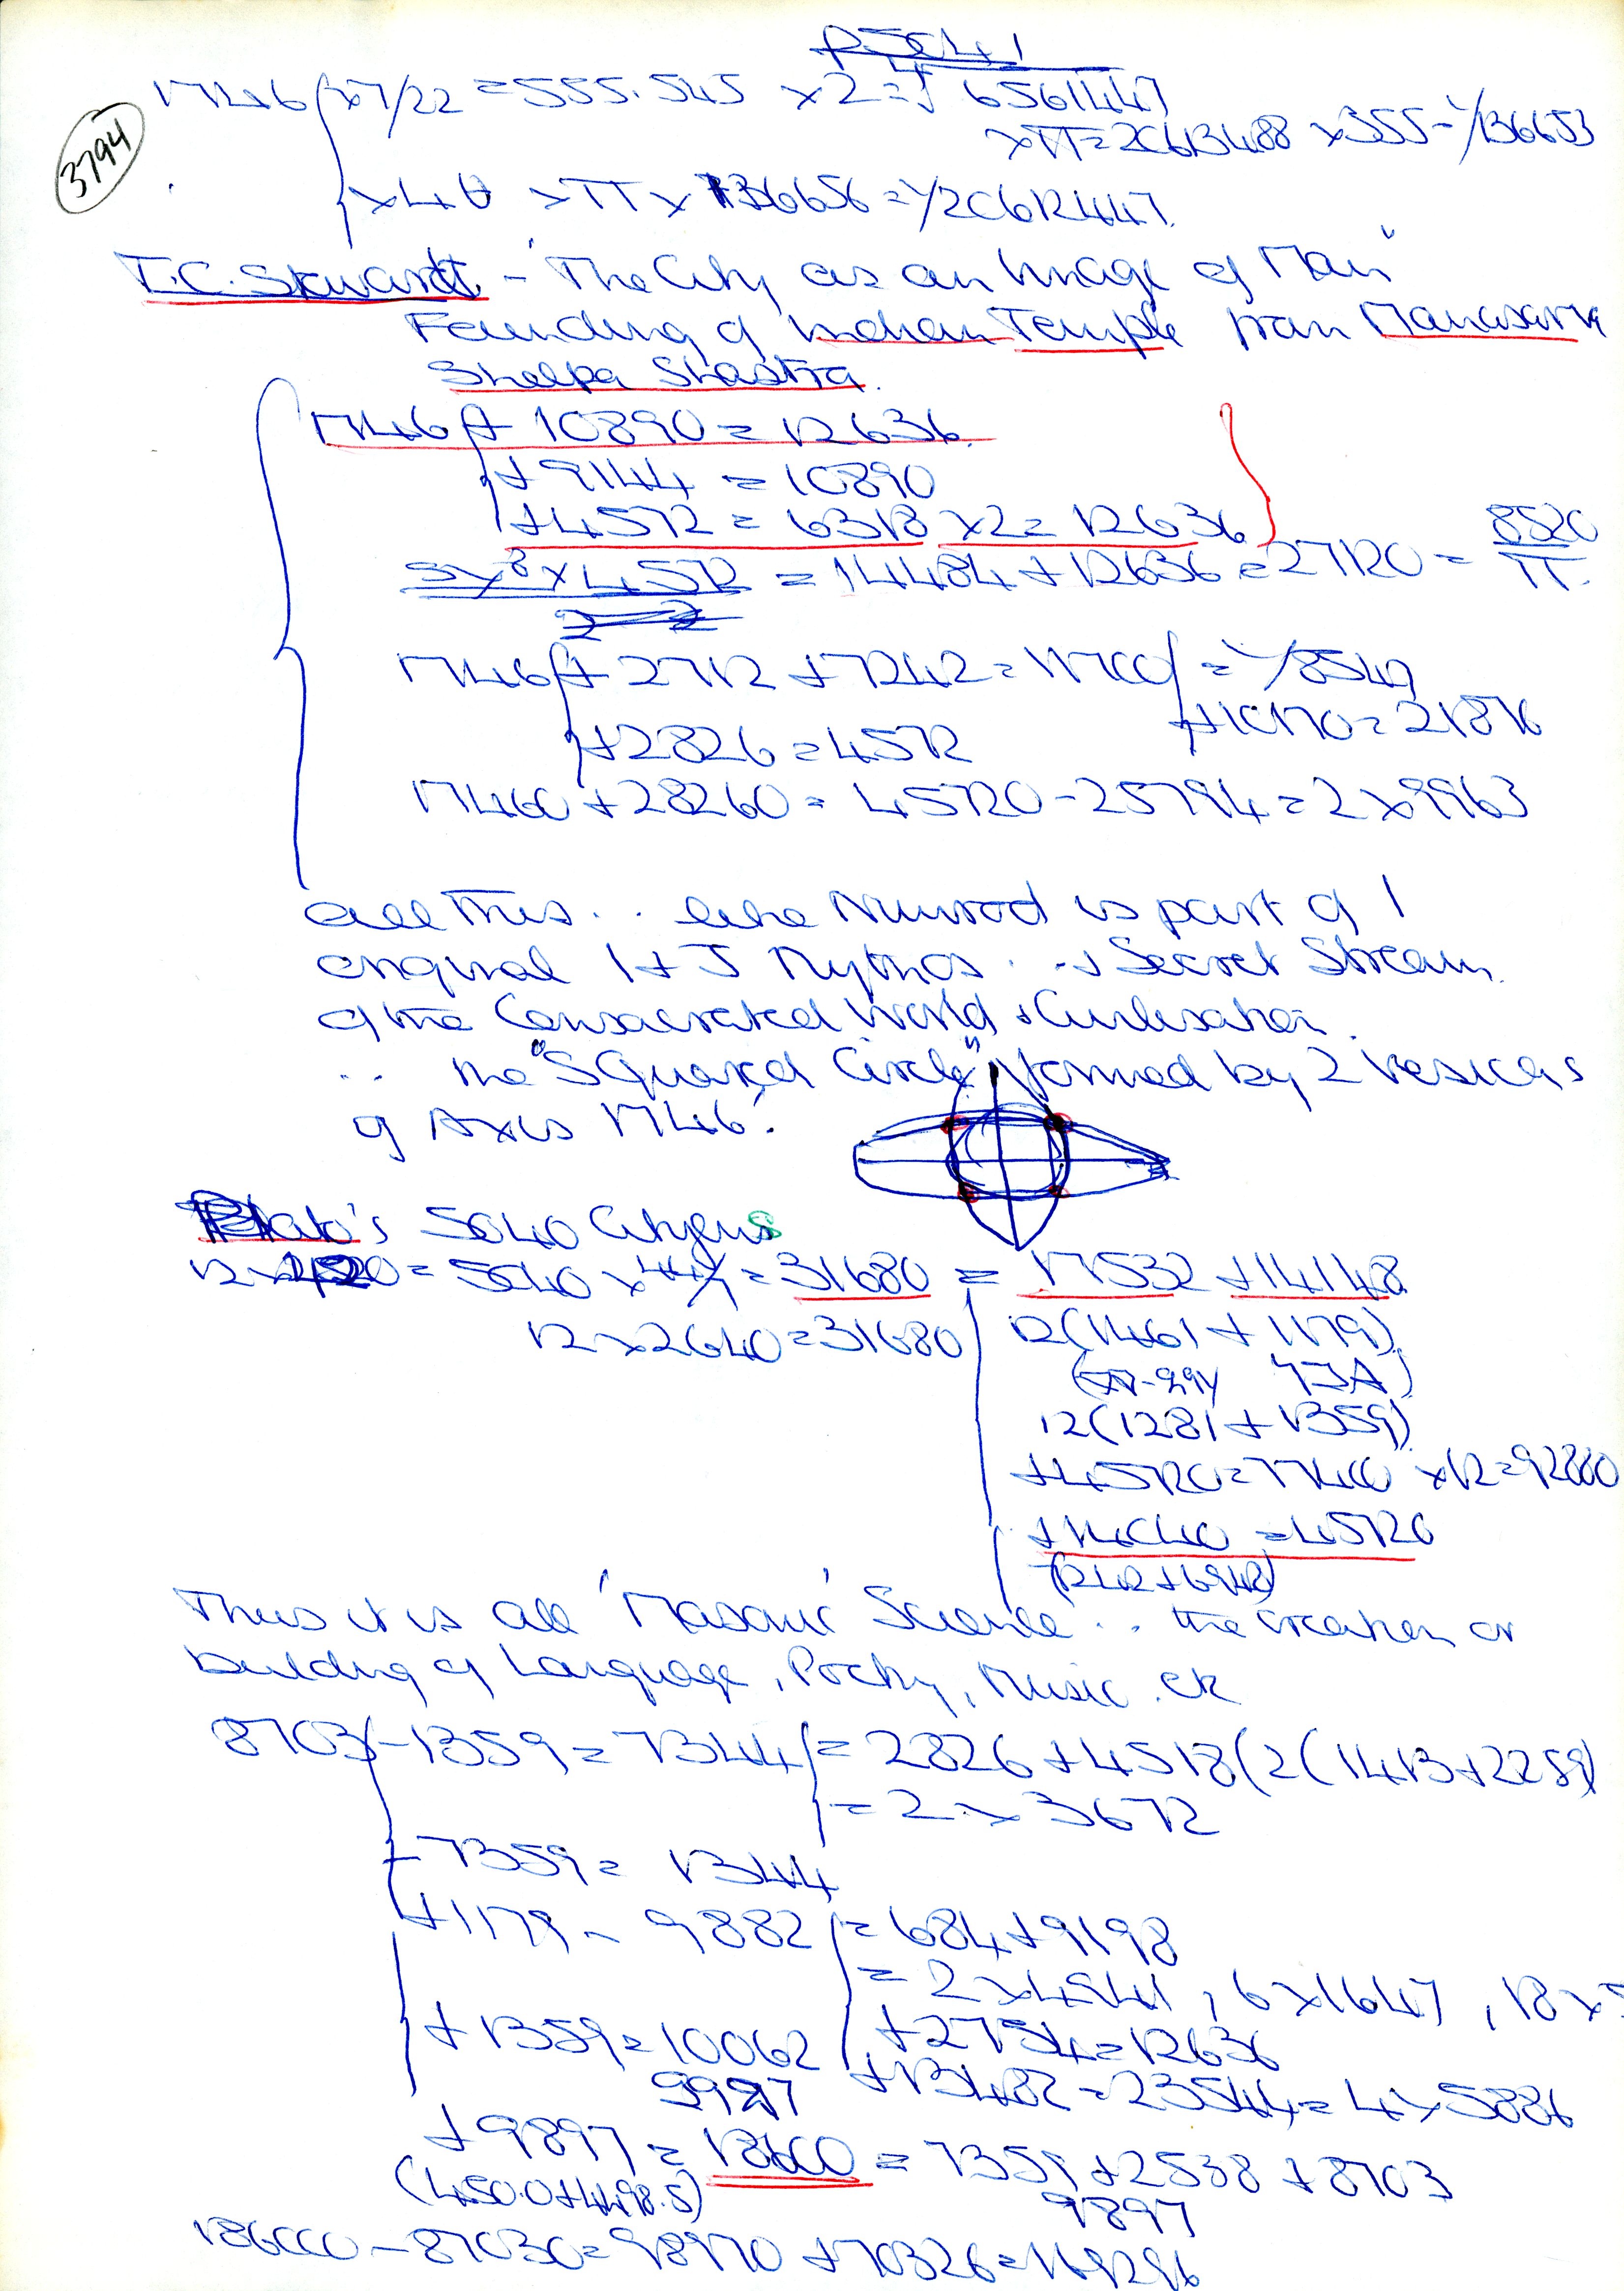 3794
1746 x 7/22 = 555.545 x 2 = 
x π = 206134.88 x 355 = 1/136653
x 4 θ x π x 136656 = 1/20612447
T.C. Stewart - 'The City as an Image of Man"
Founding of Indian Temple from Manasara
Shilpa Shastra.
1746 + 10890 = 12636.
+ 9144 = 10890
+ 4572 = 6318 x 2 = 12636
= 14484 + 12636 = 27120 = 8520/π
1746 + 2712 + 7242 = 11700 = 1/8549
+ 10170 = 21876
+ 2826 = 4572
17460 + 28260 = 45720 - 25794 = 2 x 9963
all this .. like Nimrod is part of 1
original 1 + J Mythos .. → Secret Stream
of the Consecrated World & Civilisation.
∴ the "Squared Circle" formed by 2 Vesicas
of Axis 1746.
Plato's 5040 Citizens
12 x 420 = 5040 x 44/7 = 31680 = 17532 + 14148
12 x 2640 = 31680
12(1461 + 1179)
12(1281 + 1359)
+ 45720 = 77400 x 12 = 92880
+ 14040 = 45720
Thus it is all 'Masonic' Science .. the creation or
building of Language, Poetry, Music. etc
8703 - 1359 = 7344 = 2826 + 4518 (2(1413 + 2259)
= 2 x 3672
- 7359 = 1344
+ 1179 = 9882 = 684 + 9198
= 2 x 4941, 6 x 1647, 18 x 5
+ 2754 = 12636
+ 1359 = 10062
+ 13482 = 23544 = 4 x 5886
+ 9897 = 18600 = 7359 + 2538 + 8703
(450.0 + 4498.5)
9897
186000 - 87030 = 98970 + 70326 = 169296